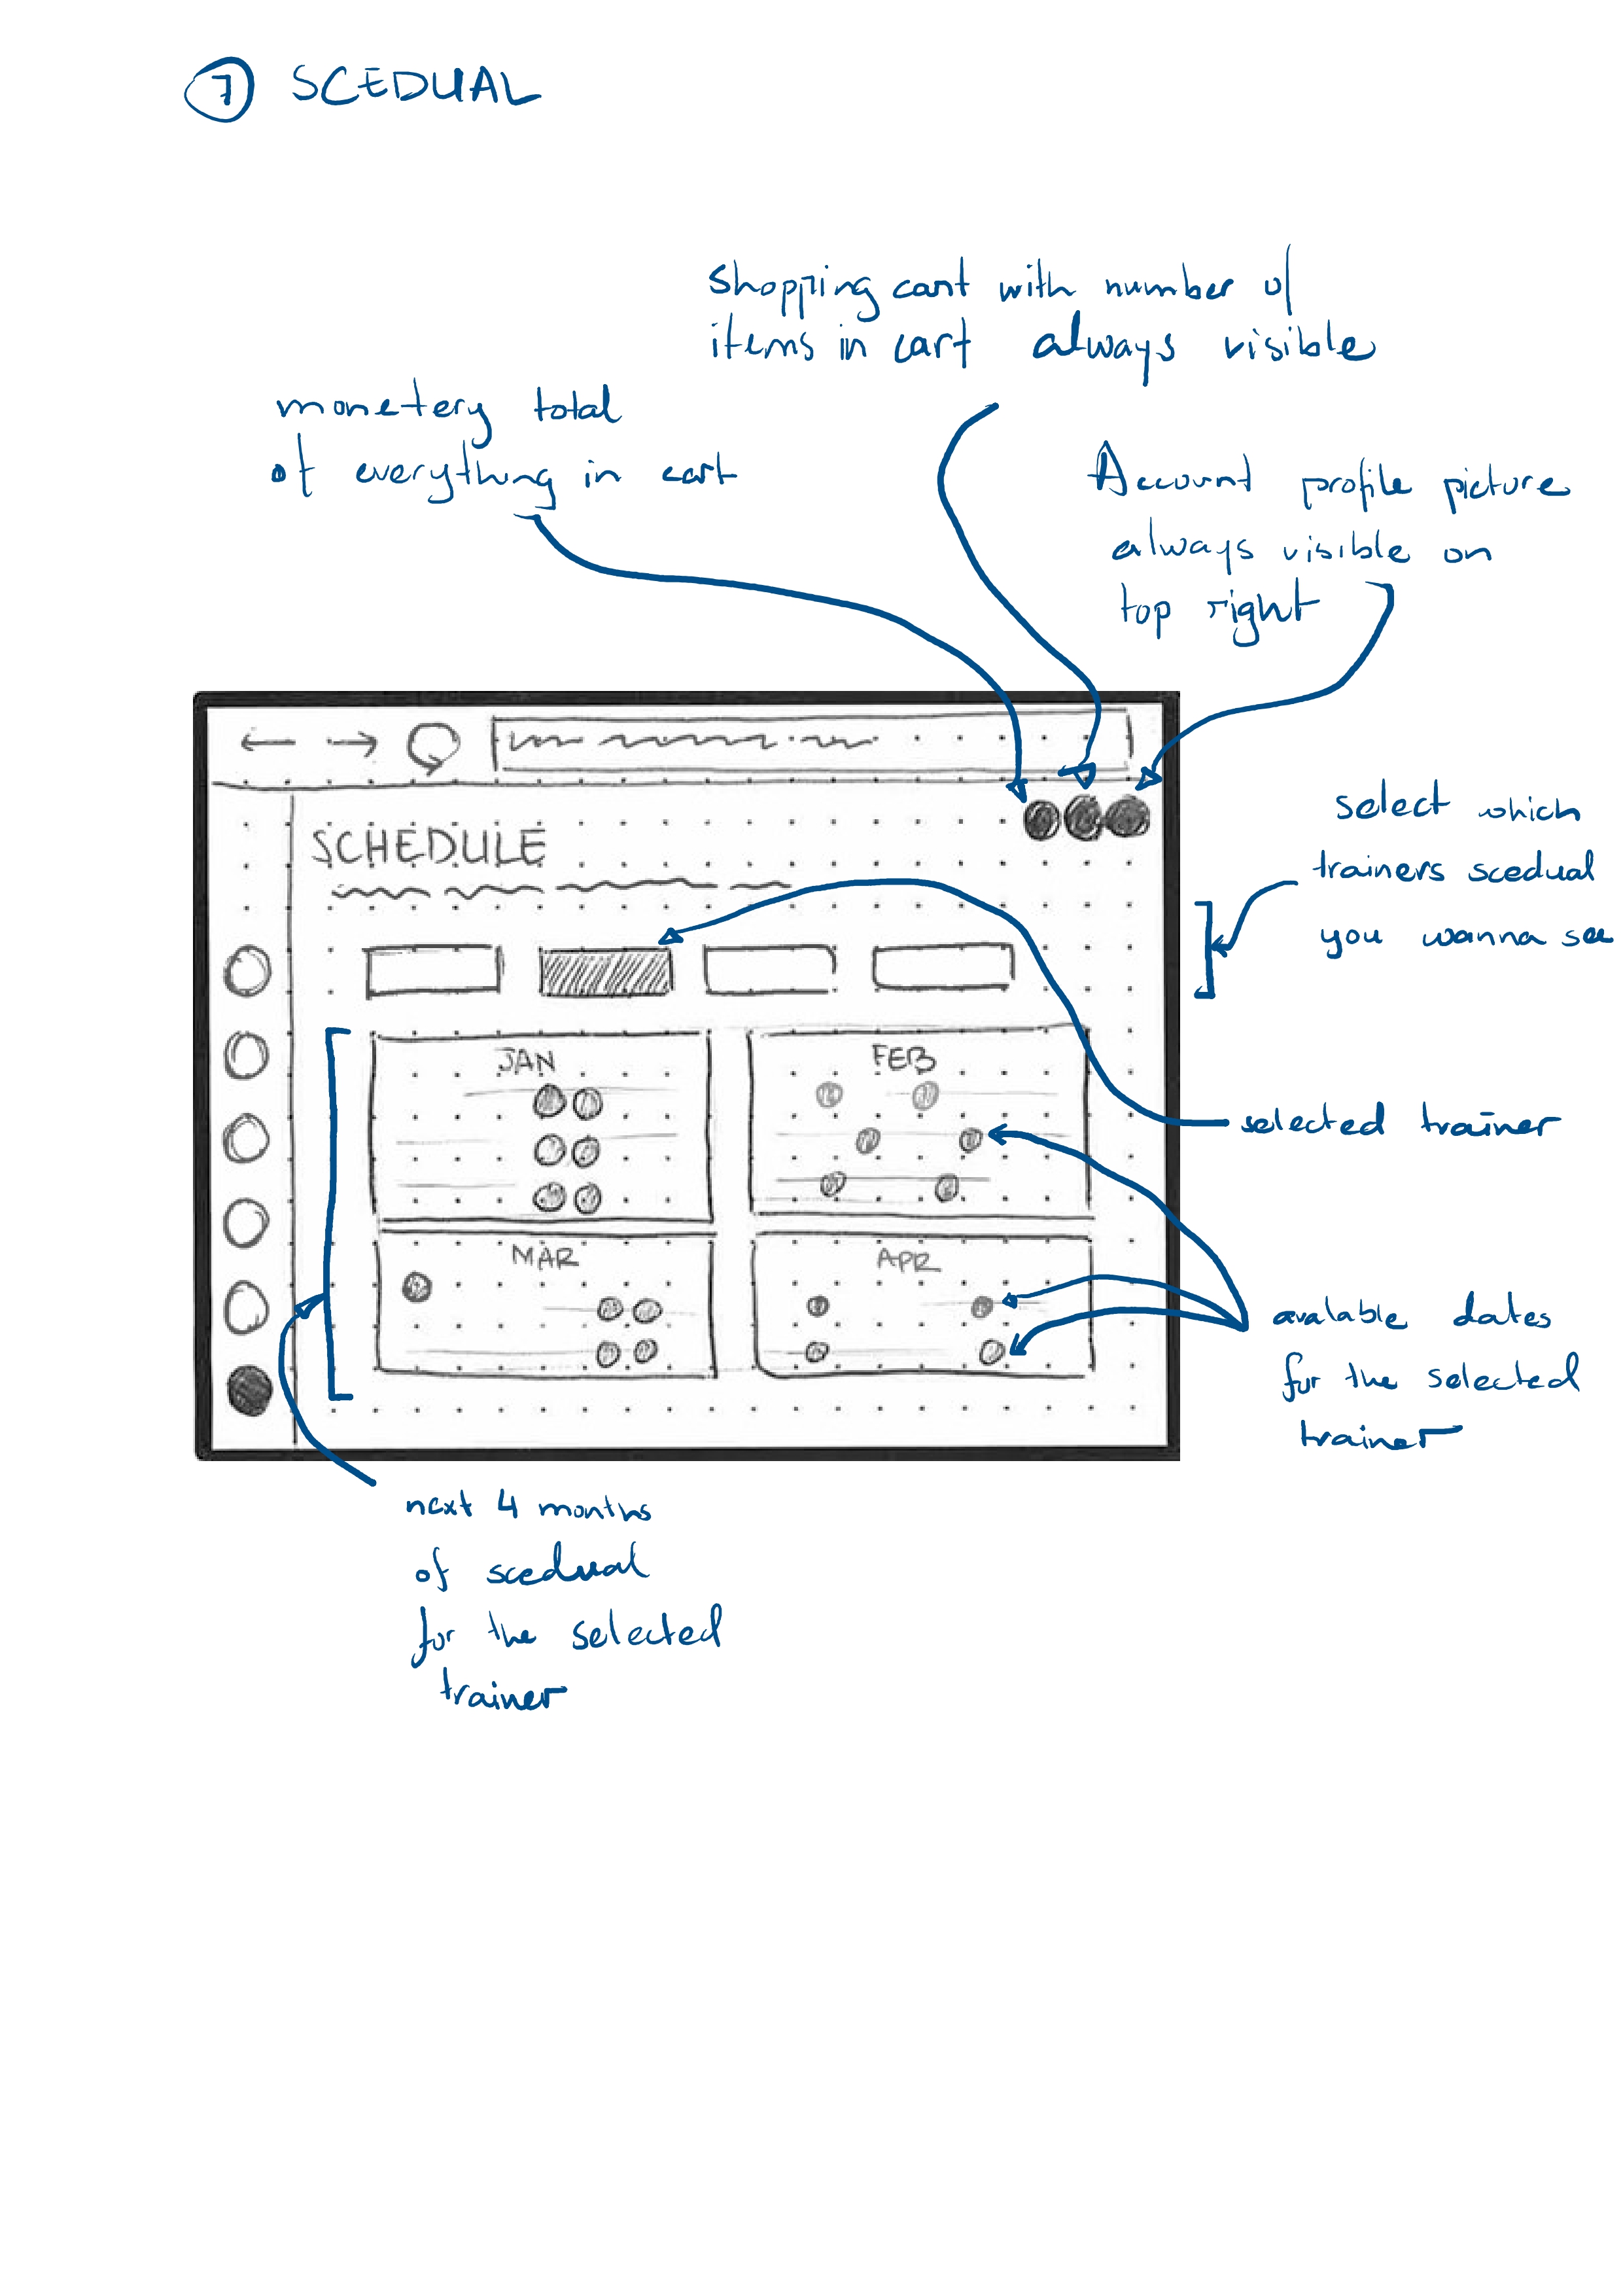 7 SCEDUAL
Shopping cart with number of
items in cart always visible
monetery total
of everything in cart
Account profile picture
always visible on
top right
select which
trainers scedual
you wanna see
SCHEDULE
JAN
FEB
selected trainer
MAR
APR
avalable dates
for the selected
trainer
next 4 months
of scedual
for the selected
trainer